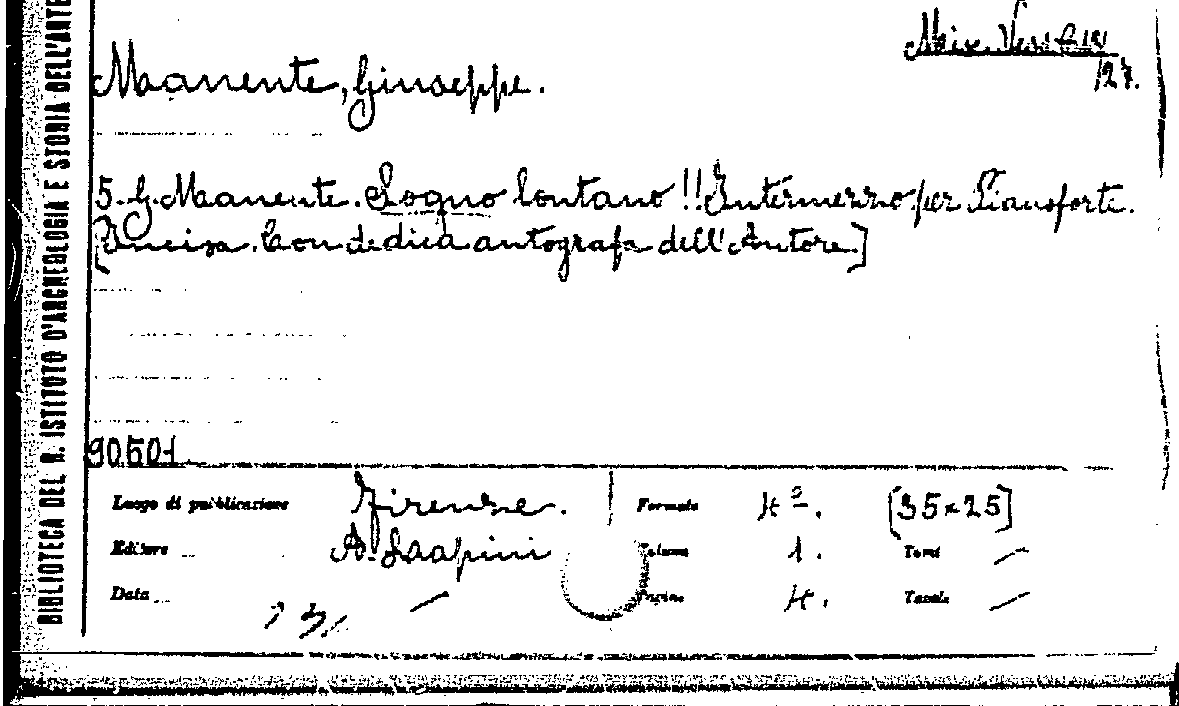 BIBLIOTECA DEL R. ISTITUTO D'ARCHEOLOGIA E STORIA DELL'ARTE
127.
Manente, Giuseppe.
5. G. Manente. Sogno lontano!! Intermezzo per Pianoforte.
[Incisa. Con dedica autografa dell'Autore]
90501
Luogo di pubblicazione Firenze. Formato 4º. [35×25]
Editore A. Lapini Volume 1. Tomi /
Data / Pagine 4. Tavole /